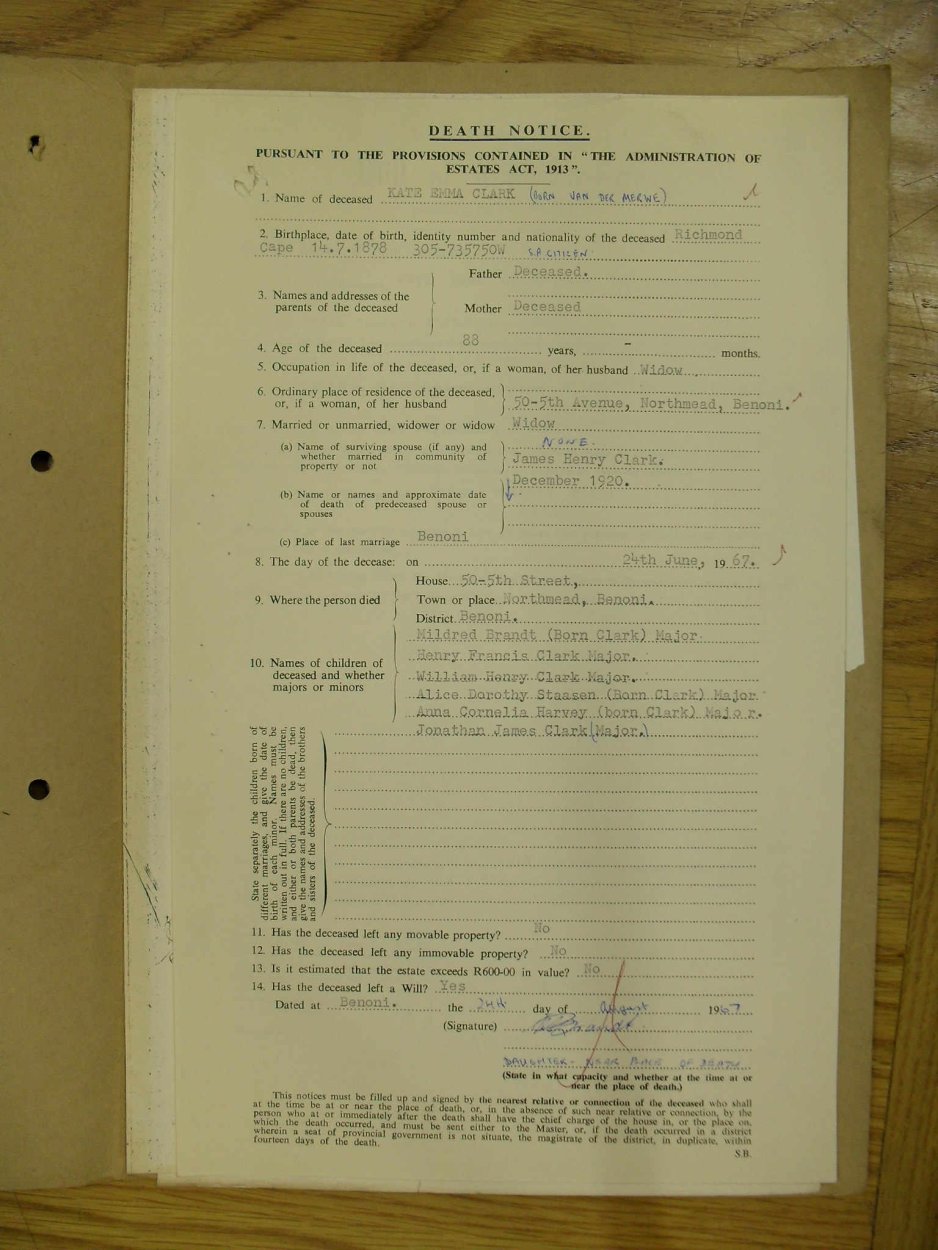 DEATH NOTICE.
PURSUANT TO THE PROVISIONS CONTAINED IN "THE ADMINISTRATION OF
ESTATES ACT, 1913".
1. Name of deceased KATE EMMA CLARK (BORN VAN DER MERWE)
2. Birthplace, date of birth, identity number and nationality of the deceased Richmond
Cape 14.7.1878 305-735750W S.A CITIZEN.
3. Names and addresses of the
parents of the deceased
Father Deceased.
Mother Deceased
4. Age of the deceased 88 years, - months.
5. Occupation in life of the deceased, or, if a woman, of her husband Widow
6. Ordinary place of residence of the deceased,
or, if a woman, of her husband 50-5th Avenue, Northmead, Benoni.
7. Married or unmarried, widower or widow Widow
(a) Name of surviving spouse (if any) and
whether married in community of
property or not
NONE.
James Henry Clark.
December 1920.
(b) Name or names and approximate date
of death of predeceased spouse or
spouses
(c) Place of last marriage Benoni
8. The day of the decease: on 24th June, 1967.
9. Where the person died
House 50-5th Street,
Town or place Northmead, Benoni.
District Benoni.
10. Names of children of
deceased and whether
majors or minors
Mildred Brandt (Born Clark) Major
Henry Francis Clark Major.
William Henry Clark Major.
Alice Dorothy Staasen (Born Clark) Major
Anna Cornelia Harvey (born Clark) Major.
Jonathan James Clark (Major.)
State separately the children born of
different marriages, and give the date of
birth of each minor. Names must be
written out in full. If there are no children,
and either or both parents be dead, then
give the names and addresses of the brothers
and sisters of the deceased.
11. Has the deceased left any movable property? No
12. Has the deceased left any immovable property? No
13. Is it estimated that the estate exceeds R600-00 in value? No
14. Has the deceased left a Will? Yes
Dated at Benoni. the 24th day of August 1967
(Signature) Brandt
DAUGHTER - NEAR PLACE OF DEATH
(State in what capacity and whether at the time at or
near the place of death.)
This notices must be filled up and signed by the nearest relative or connection of the deceased who shall
at the time be at or near the place of death, or, in the absence of such near relative or connection, by the
person who at or immediately after the death shall have the chief charge of the house in, or the place on,
which the death occurred, and must be sent either to the Master, or, if the death occurred in a district
wherein a seat of provincial government is not situate, the magistrate of the district, in duplicate, within
fourteen days of the death.
S.B.